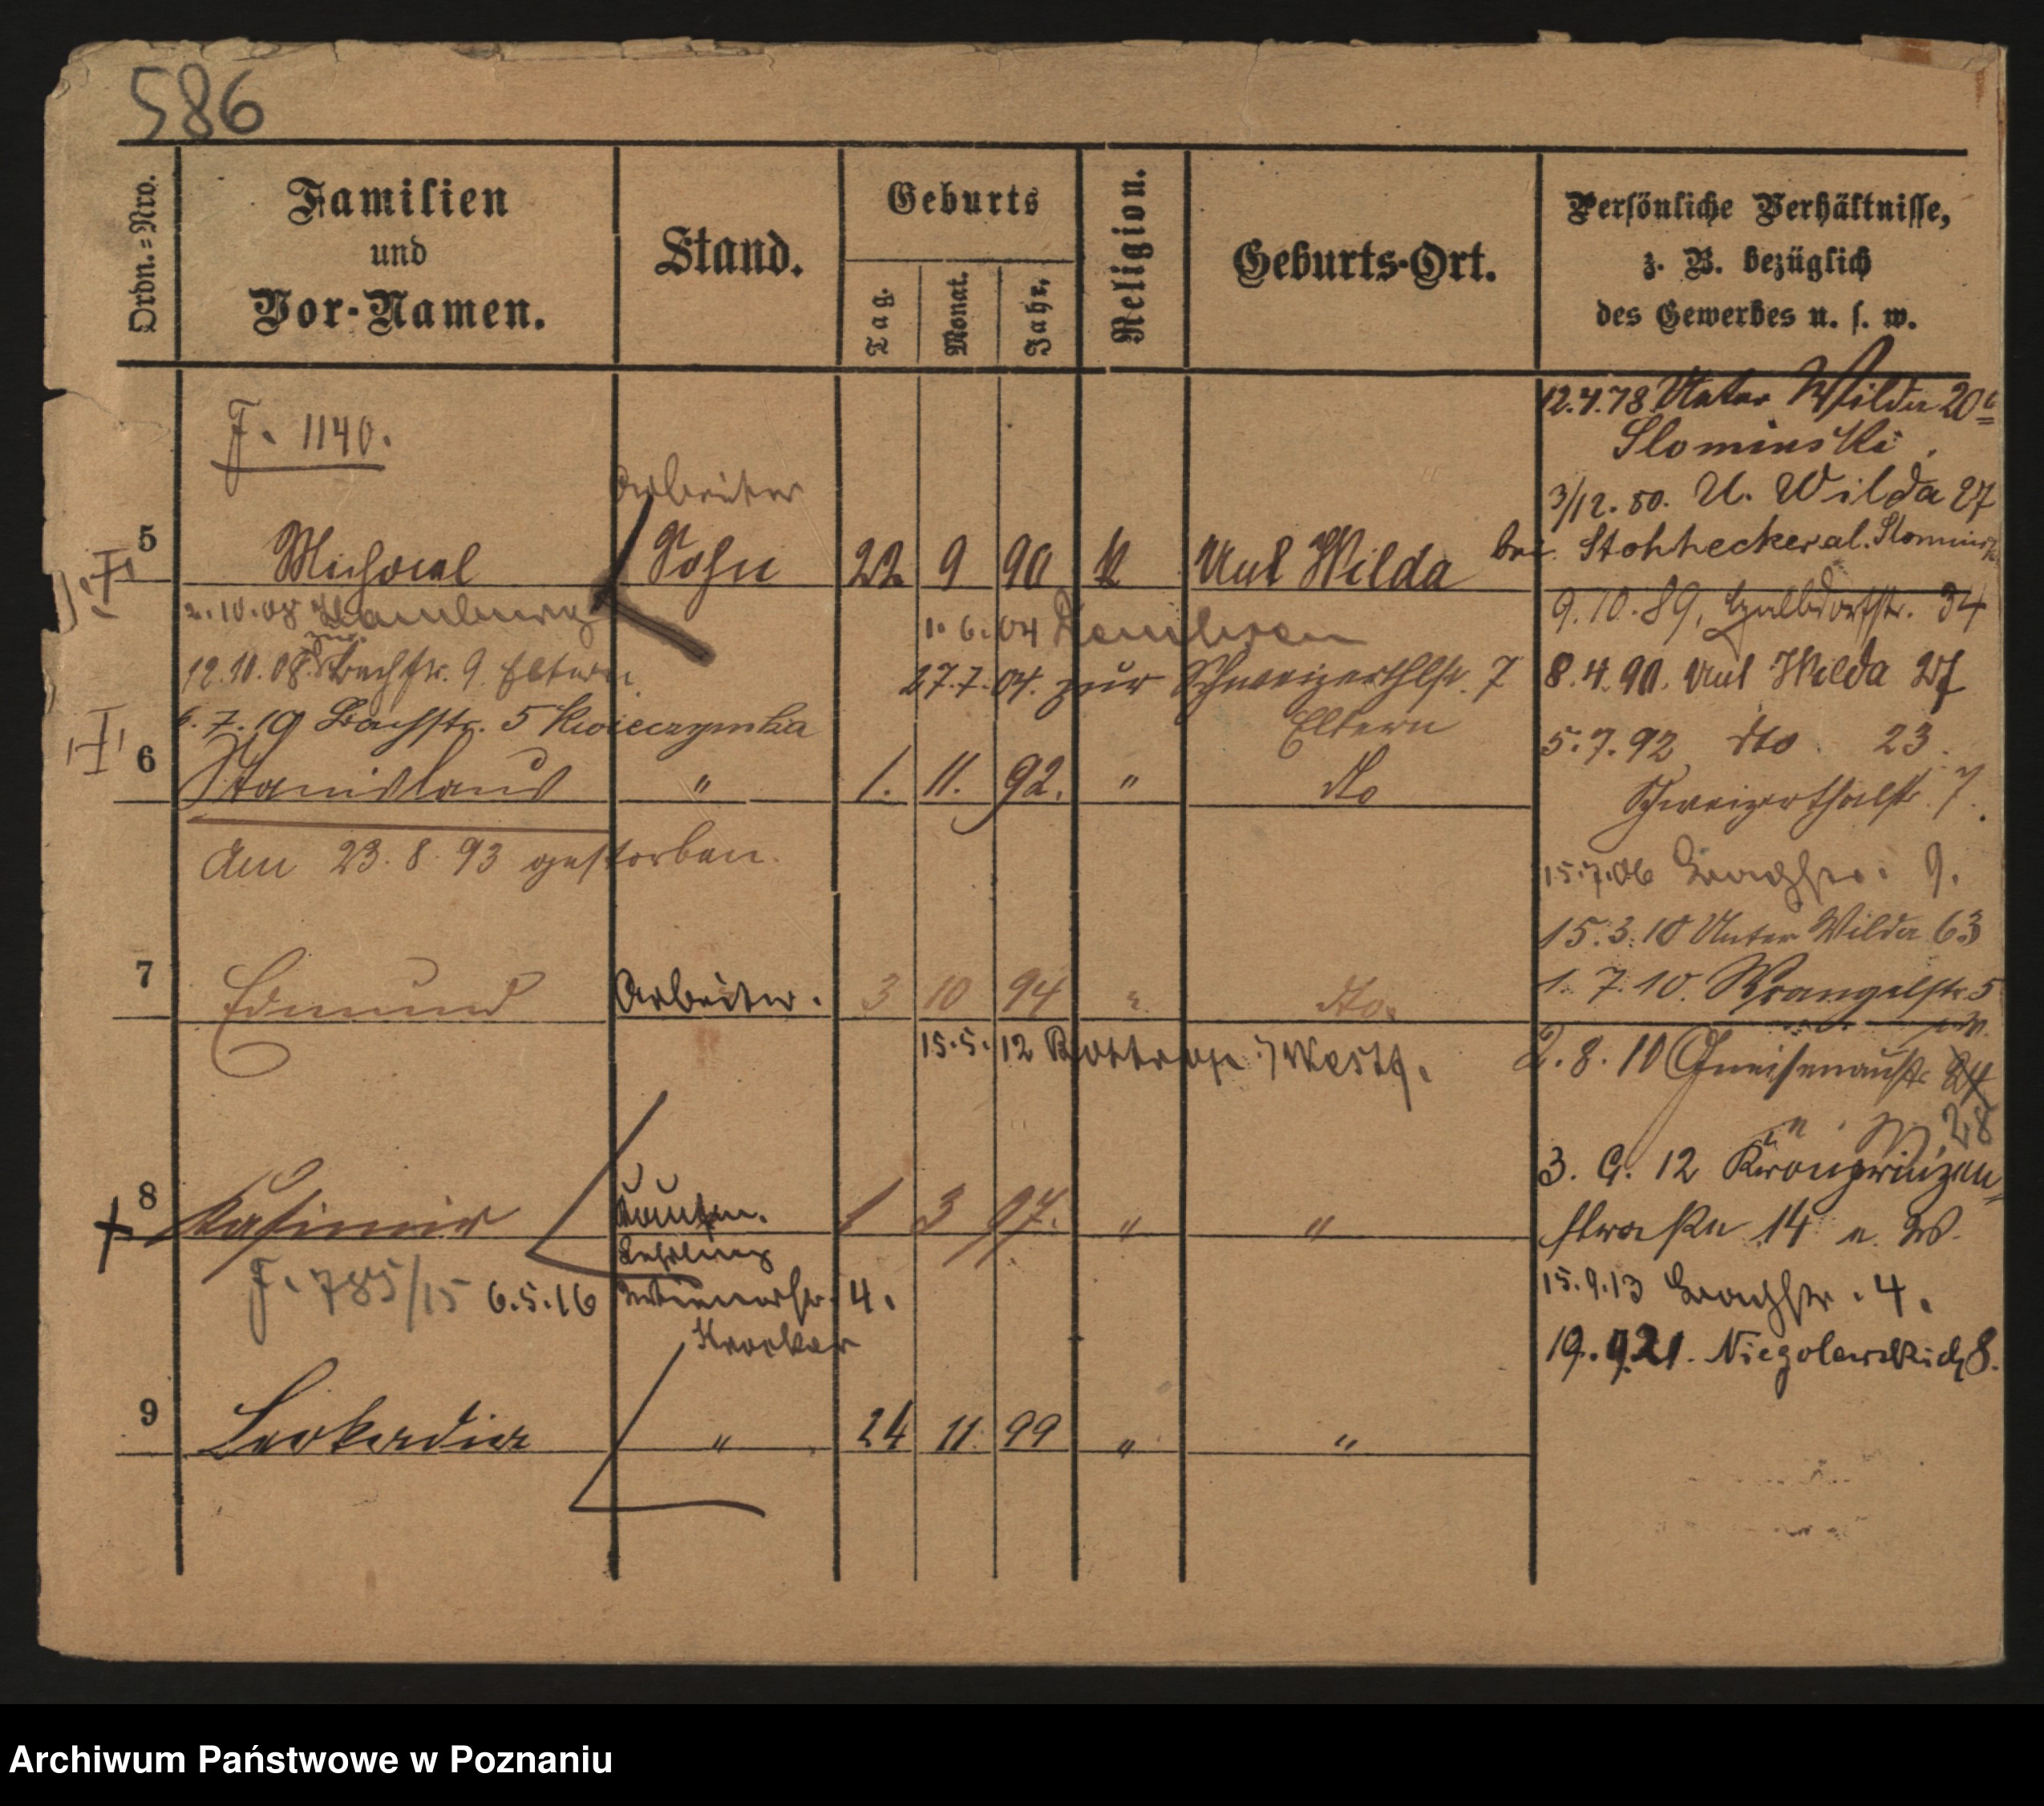 586
Ordn.=Nro.
Familien
und
Vor-Namen.
Stand.
Geburts
Tag.
Monat.
Jahr.
Religion.
Geburts-Ort.
Persönliche Verhältnisse,
z. B. bezüglich
des Gewerbes u. s. w.
J. 1140.
12.4.78 Unter Wilda 20
Slominski
3/12. 80. U. Wilda 27
Arbeiter
5 Michael Sohn 22 9 90 k Unt Wilda
bei Stohhecker al. Slominski
2.10.08 Hamburg
1.6.04 Dembsen
9.10.89, Halbdorfstr. 34
12.10.08 Bachstr. 9. Eltern
27.7.04. zur Schweizerthlstr. 7
Eltern
8.4.90. Unt Wilda 27
7.19 Bachstr. 5 Kwieczynska
5.7.92 dto 23.
6 Stanislaus " 1. 11. 92. " dto
Schweizerthalstr. 7.
Am 23. 8. 93 gestorben.
15.7.06 Bachstr. 9.
15.3.10 Unter Wilda 63
7 Edmund Arbeiter. 3 10 94 " dto.
1. 7. 10. Wrangelstr. 5
15.5.12 Bottrop i/Westf.
2. 8. 10 Gneisenaustr. 24
28
8 Kasimir Kaufm. 1 3 97. " "
Lehrling
3. 9. 12 Kronprinzen-
straße 14 u. W.
J. 785/15 6.5.16 4.
15.9.13 Bachstr. 4.
19. 9.21. Niegolewskich 8.
9 Leokardia " 24 11. 99 " "
Archiwum Państwowe w Poznaniu